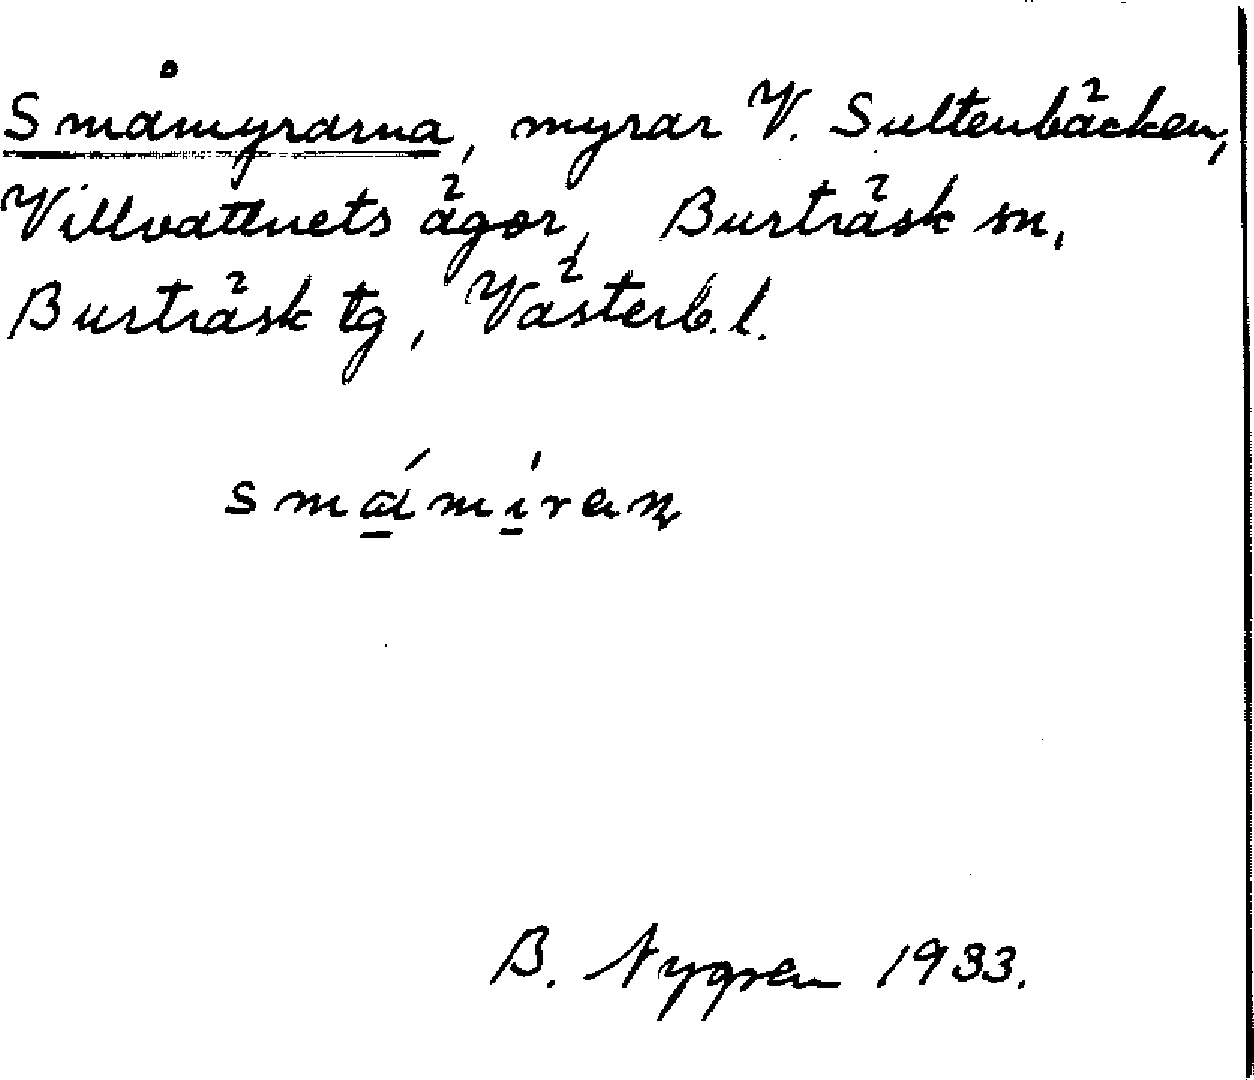 Småmyrarna, myrar V. Sultenbäcken,
Villvattnets ägor, Burträsk sn,
Burträsk tg, Västerb. l.
småmíraṇ
B. Nygren 1933.